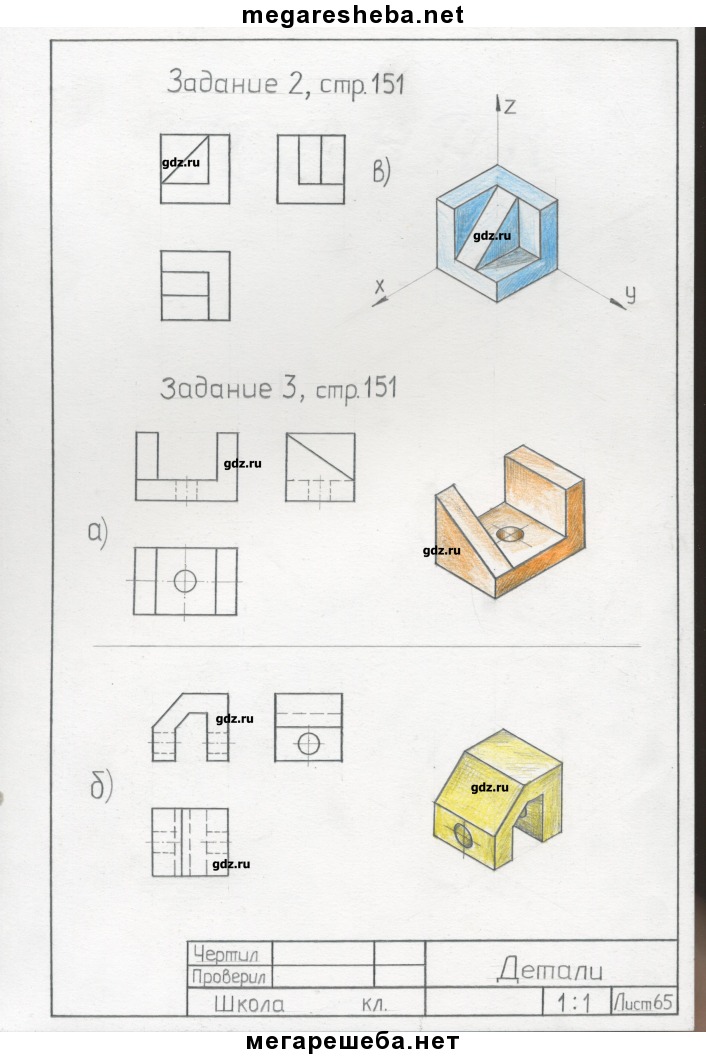 megaresheba.net
Задание 2, стр.151
gdz.ru
в)
z
gdz.ru
x
y
Задание 3, стр.151
gdz.ru
а)
gdz.ru
gdz.ru
б)
gdz.ru
gdz.ru
Чертил
Проверил
Детали
Школа кл.
1:1
Лист65
мегарешеба.нет